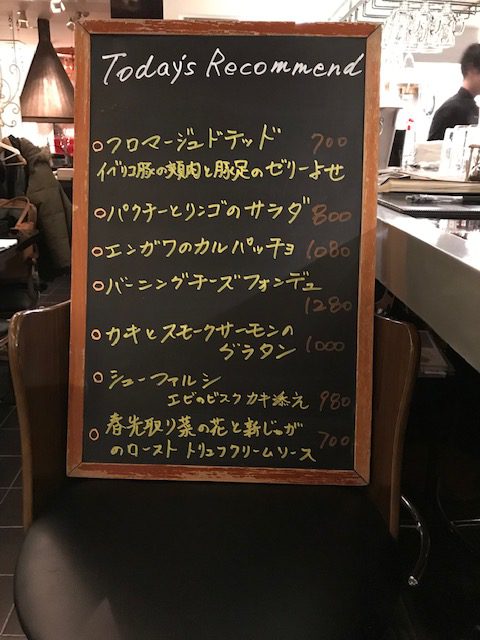 Today's Recommend
○フロマージュドテッド 700
イベリコ豚の頬肉と豚足のゼリーよせ
○パクチーとリンゴのサラダ 800
○エンガワのカルパッチョ 1080
○バーニングチーズフォンデュ
1280
○カキとスモークサーモンの
グラタン 1000
○シューファルシ
エビのビスク カキ添え 980
○春先取り菜の花と新じゃが 700
のロースト トリュフクリームソース